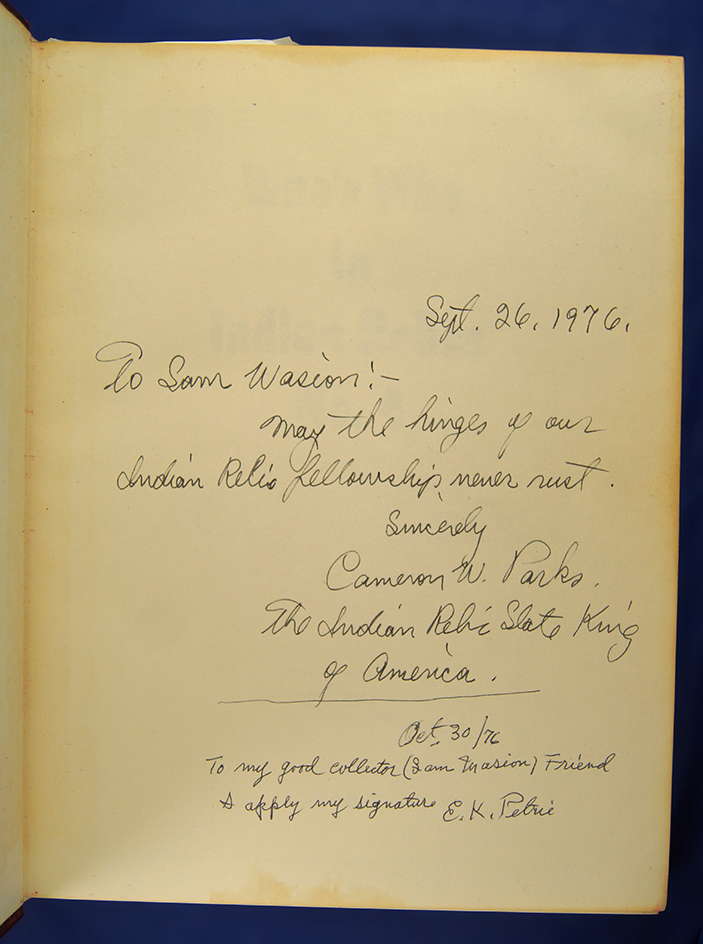 Sept. 26, 1976.
To Sam Wasion!-
May the hinges of our
Indian Relic fellowship never rust.
Sincerely
Cameron W. Parks.
The Indian Relic Slate King
of America.
Oct. 30/76
To my good collector (Sam Wasion) Friend
I apply my signature E. K. Petrie